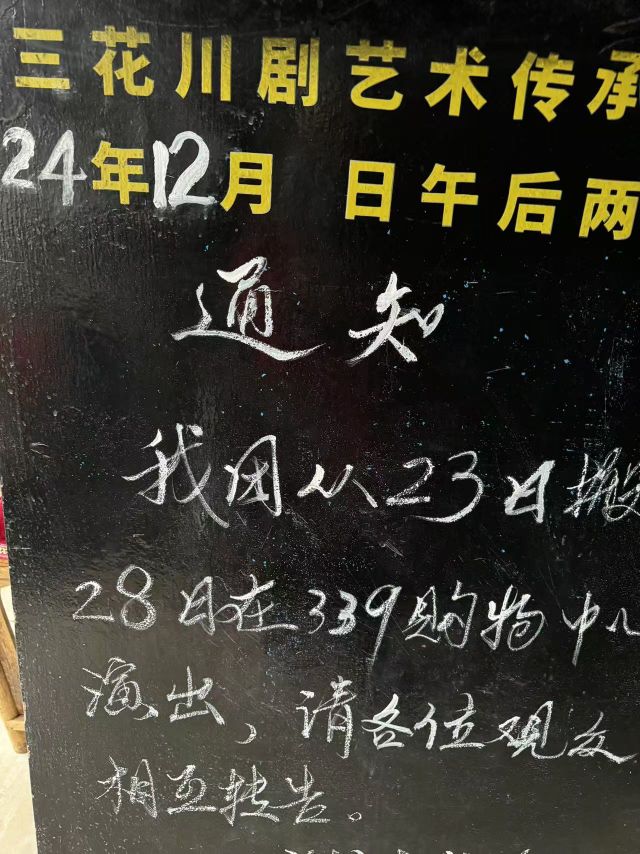 三花川剧艺术传承
24年12月 日午后两
通知
我团从23日搬
28日在339购物中心
演出，请各位观众
相互转告。